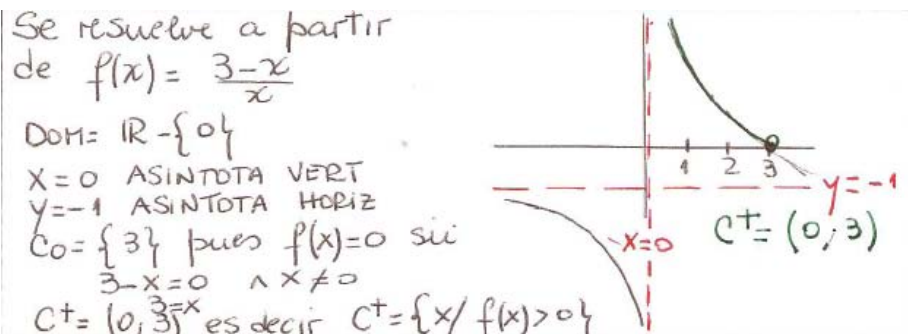 Se resuelve a partir
de f(x) = 3-x/x
DOM = IR - {0}
X = 0 ASINTOTA VERT
y = -1 ASINTOTA HORIZ
C0 = {3} pues f(x)=0 sii
3-x=0 ∧ x≠0
3=x
C+ = (0,3) es decir C+ = {x/ f(x)>0}
1 2 3
y = -1
X=0
C+ = (0; 3)